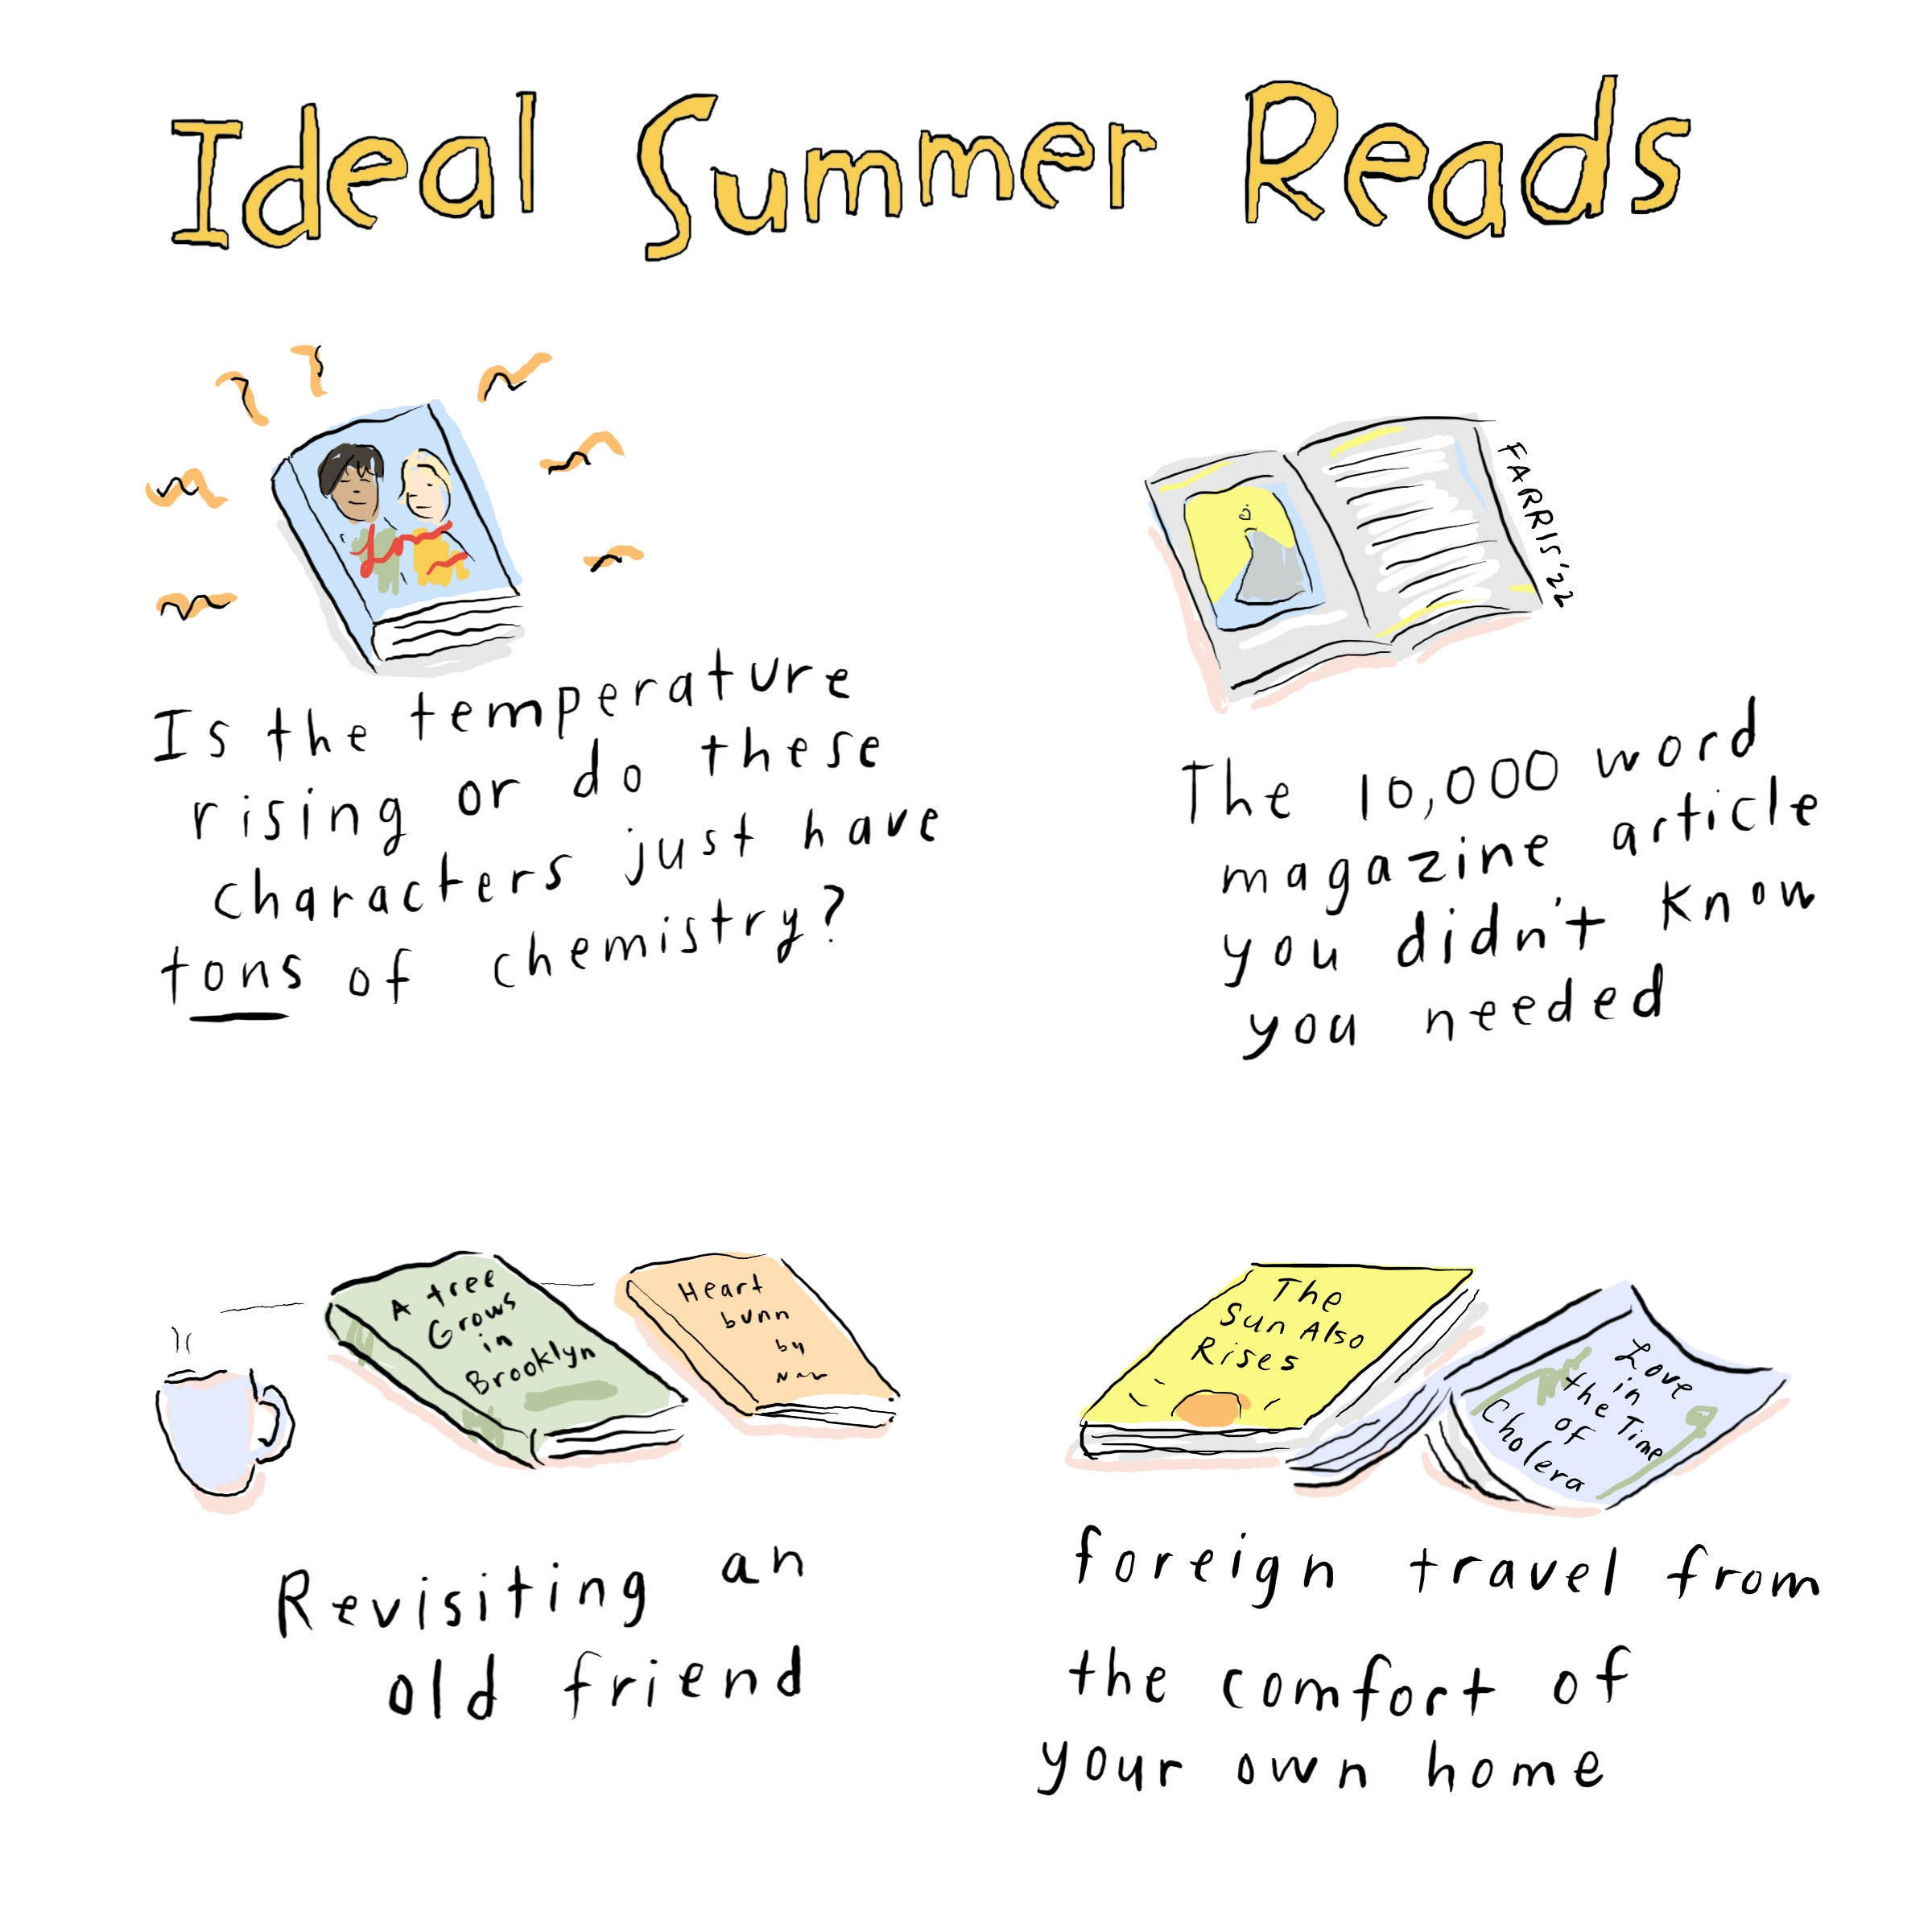 Ideal Summer Reads
Is the temperature
rising or do these
characters just have
tons of chemistry?
FARRIS '22
The 10,000 word
magazine article
you didn't know
you needed
A tree
Grows
in
Brooklyn
Heart
bunn
by
Revisiting an
old friend
The
Sun Also
Rises
Love
in
the Time
of
Cholera
foreign travel from
the comfort of
your own home